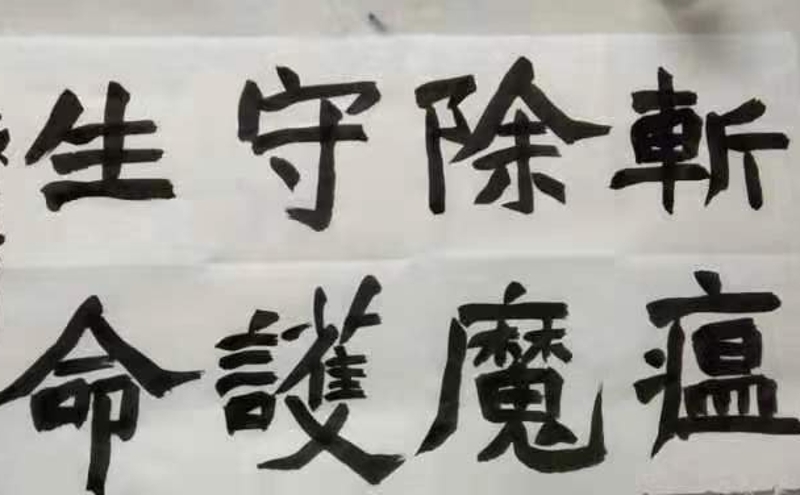 斬瘟
除魔
守護
生命